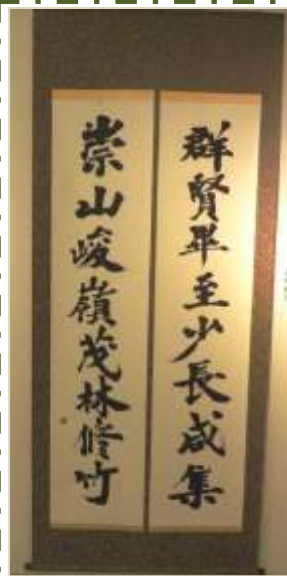 群賢畢至少長咸集
崇山峻嶺茂林修竹